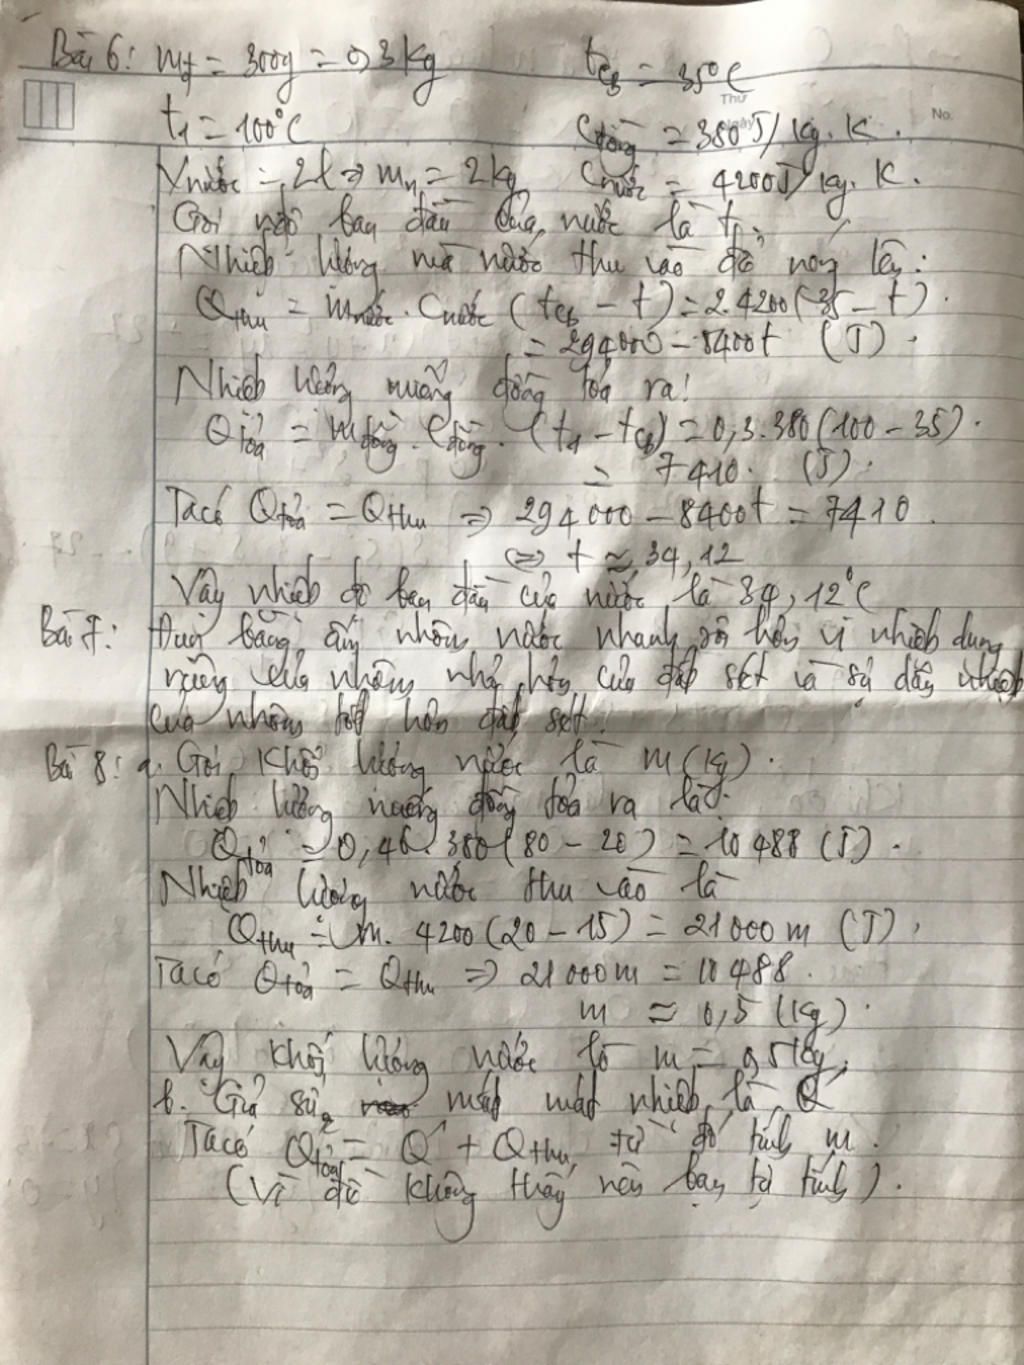 Bài 6: mđ = 300g = 0,3kg tcb = 35°C
Thứ
Ngày
No.
t1 = 100°C Cđồng = 380J/kg.K.
Vnước = 2l => mn = 2kg Cnước = 4200J/kg.K.
Gọi nđộ ban đầu của nước là t.
Nhiệt lượng mà nước thu vào để nóng lên:
Qthu = mnước . Cnước (tcb - t) = 2.4200(35 - t).
= 294000 - 8400t (J).
Nhiệt lượng miếng đồng tỏa ra:
Qtỏa = mđồng . Cđồng . (t1 - tcb) = 0,3.380(100 - 35).
= 7410. (J).
Ta có Qtỏa = Qthu => 294000 - 8400t = 7410.
<=> t ≈ 34,12
Vậy nhiệt độ ban đầu của nước là 34,12°C
Bài 7: Đun bằng ấm nhôm nước nhanh sôi hơn vì nhiệt dung
riêng của nhôm nhỏ hơn của đất sét và sự dẫn nhiệt
của nhôm tốt hơn đất sét.
Bài 8: a. Gọi khối lượng nước là m(kg).
Nhiệt lượng miếng đồng tỏa ra là:
Qtỏa = 0,46.380(80 - 20) = 10488 (J).
Nhiệt lượng nước thu vào là
Qthu = m. 4200(20 - 15) = 21000m (J).
Ta có Qtỏa = Qthu => 21000m = 10488.
m ≈ 0,5 (kg).
Vậy khối lượng nước là m = 0,5kg.
b. Giả sử mất mát nhiệt là Q'
Ta có Qtỏa = Q' + Qthu, từ đó tính m.
(Vì đề không thấy nên bạn tự tính).